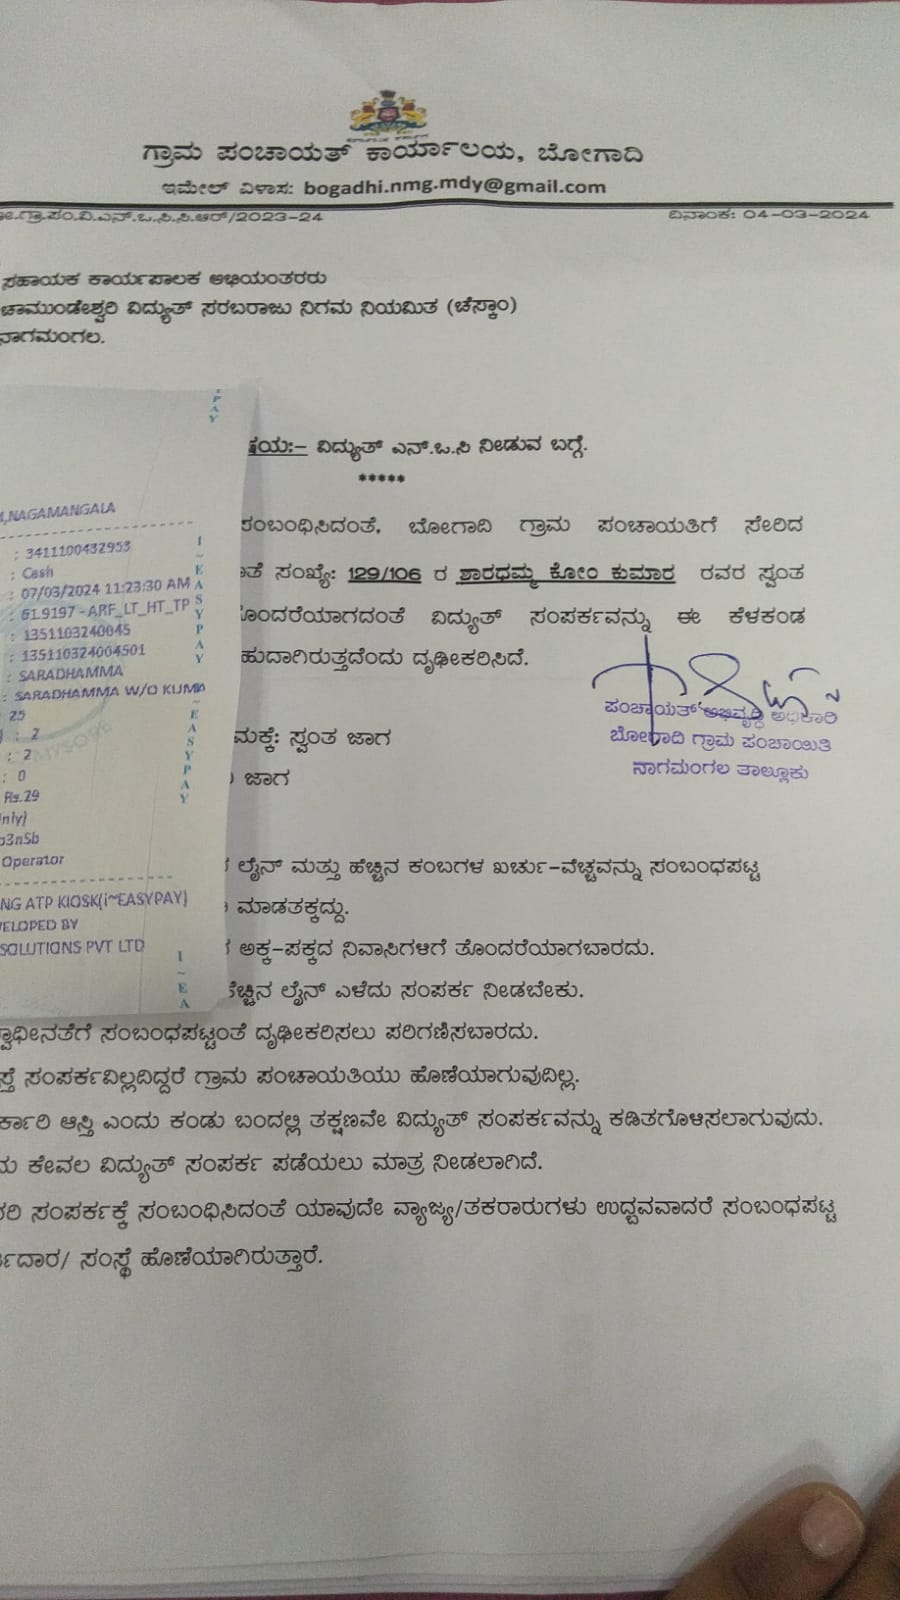 ಗ್ರಾಮ ಪಂಚಾಯತ್ ಕಾರ್ಯಾಲಯ, ಬೋಗಾದಿ
ಇಮೇಲ್ ವಿಳಾಸ: bogadhi.nmg.mdy@gmail.com
ಗ್ರಾ.ಪಂ.ವಿ.ಎನ್.ಒ.ಸಿ.ಸಿ.ಆರ್/2023-24 ದಿನಾಂಕ: 04-03-2024
ಸಹಾಯಕ ಕಾರ್ಯಪಾಲಕ ಅಭಿಯಂತರರು
ಚಾಮುಂಡೇಶ್ವರಿ ವಿದ್ಯುತ್ ಸರಬರಾಜು ನಿಗಮ ನಿಯಮಿತ (ಚೆಸ್ಕಾಂ)
ನಾಗಮಂಗಲ.
ವಿದ್ಯುತ್ ಎನ್.ಒ.ಸಿ ನೀಡುವ ಬಗ್ಗೆ.
*****
ಸಂಬಂಧಿಸಿದಂತೆ, ಬೋಗಾದಿ ಗ್ರಾಮ ಪಂಚಾಯತಿಗೆ ಸೇರಿದ
ಸಂಖ್ಯೆ: 129/106 ರ ಶಾರಧಮ್ಮ ಕೋಂ ಕುಮಾರ ರವರ ಸ್ವಂತ
ತೊಂದರೆಯಾಗದಂತೆ ವಿದ್ಯುತ್ ಸಂಪರ್ಕವನ್ನು ಈ ಕೆಳಕಂಡ
ಹುದಾಗಿರುತ್ತದೆಂದು ದೃಢೀಕರಿಸಿದೆ.
ಪಂಚಾಯತ್ ಅಭಿವೃದ್ಧಿ ಅಧಿಕಾರಿ
ಬೋಗಾದಿ ಗ್ರಾಮ ಪಂಚಾಯಿತಿ
ನಾಗಮಂಗಲ ತಾಲ್ಲೂಕು
ಮಕ್ಕೆ: ಸ್ವಂತ ಜಾಗ
ಜಾಗ
ಲೈನ್ ಮತ್ತು ಹೆಚ್ಚಿನ ಕಂಬಗಳ ಖರ್ಚು-ವೆಚ್ಚವನ್ನು ಸಂಬಂಧಪಟ್ಟ
ಮಾಡತಕ್ಕದ್ದು.
ಅಕ್ಕ-ಪಕ್ಕದ ನಿವಾಸಿಗಳಿಗೆ ತೊಂದರೆಯಾಗಬಾರದು.
ಹೆಚ್ಚಿನ ಲೈನ್ ಎಳೆದು ಸಂಪರ್ಕ ನೀಡಬೇಕು.
ಸ್ವಾಧೀನತೆಗೆ ಸಂಬಂಧಪಟ್ಟಂತೆ ದೃಢೀಕರಿಸಲು ಪರಿಗಣಿಸಬಾರದು.
ಸಂಪರ್ಕವಿಲ್ಲದಿದ್ದರೆ ಗ್ರಾಮ ಪಂಚಾಯತಿಯು ಹೊಣೆಯಾಗುವುದಿಲ್ಲ.
ರ್ಕಾರಿ ಆಸ್ತಿ ಎಂದು ಕಂಡು ಬಂದಲ್ಲಿ ತಕ್ಷಣವೇ ವಿದ್ಯುತ್ ಸಂಪರ್ಕವನ್ನು ಕಡಿತಗೊಳಿಸಲಾಗುವುದು.
ಕೇವಲ ವಿದ್ಯುತ್ ಸಂಪರ್ಕ ಪಡೆಯಲು ಮಾತ್ರ ನೀಡಲಾಗಿದೆ.
ಸಂಪರ್ಕಕ್ಕೆ ಸಂಬಂಧಿಸಿದಂತೆ ಯಾವುದೇ ವ್ಯಾಜ್ಯ/ತಕರಾರುಗಳು ಉದ್ಭವವಾದರೆ ಸಂಬಂಧಪಟ್ಟ
ದಾರ/ ಸಂಸ್ಥೆ ಹೊಣೆಯಾಗಿರುತ್ತಾರೆ.
,NAGAMANGALA
: 3411100432953
: Cash
: 07/03/2024 11:23:30 AM
: 61.9197 - ARF_LT_HT_TP
: 1351103240045
: 135110324004501
: SARADHAMMA
: SARADHAMMA W/O KUMA
: 25
: 2
: 2
: 0
Rs.29
nly)
p3nSb
Operator
NG ATP KIOSK(i~EASYPAY)
VELOPED BY
SOLUTIONS PVT LTD
I~EASYPAY
~EASYPAY